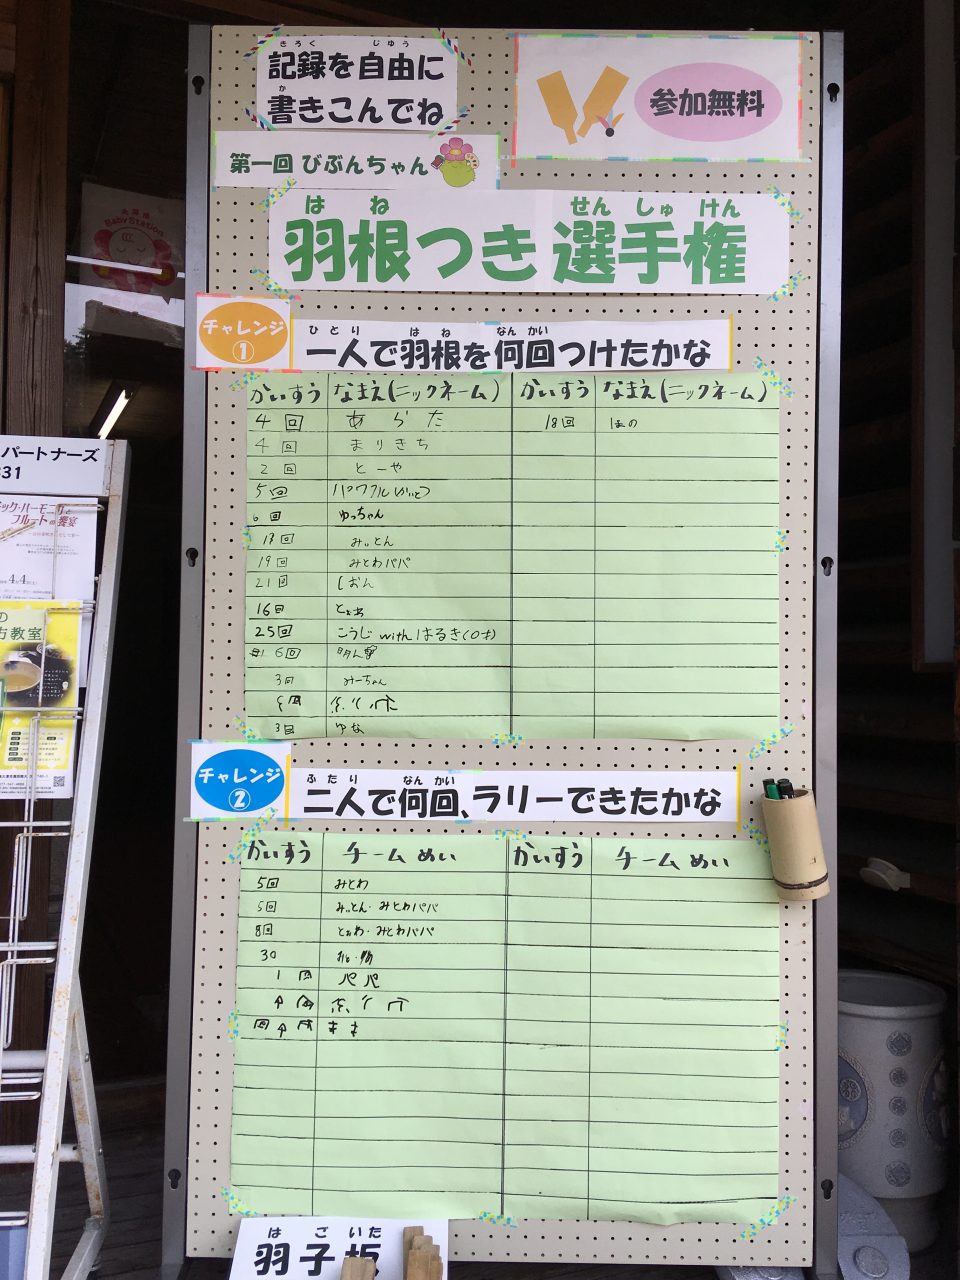 記録を自由に
書きこんでね
参加無料
第一回 びぶんちゃん
羽根つき選手権
チャレンジ
①
一人で羽根を何回つけたかな
かいすう なまえ(ニックネーム) かいすう なまえ(ニックネーム)
4回 あらた 18回 ほの
4回 まりきち
2回 とーや
5回
6回 ゆっちゃん
18回 みぃとん
19回 みとわパパ
21回 しおん
16回
25回 こうじ with はるき(0才)
6回
3回 みーちゃん
3回 ゆな
チャレンジ
②
二人で何回、ラリーできたかな
かいすう チームめい かいすう チームめい
5回 みとわ
5回 みぃとん・みとわパパ
8回 とぉわ・みとわパパ
30
1回 パパ
羽子板
パートナーズ
31
フルートの饗宴
4.4
方教室
Baby Station